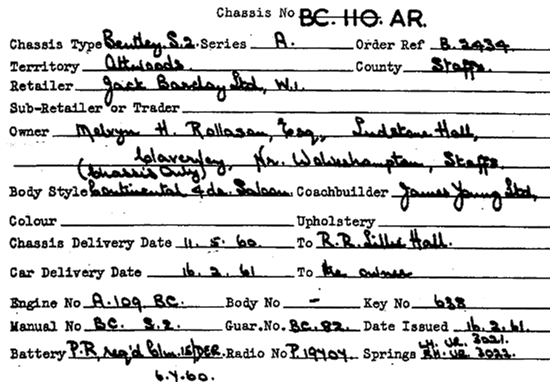 Chassis No BC. 110. AR.
Chassis Type Bentley S.2. Series A. Order Ref B. 2434
Territory Attwoods County Staffs.
Retailer Jack Barclay Ltd, W.1.
Sub-Retailer or Trader
Owner Melvyn H. Rollason, Esq, Ludstone Hall,
Claverley, Nr. Wolverhampton, Staffs.
(Chassis Only)
Body Style Continental 4 dr. Saloon. Coachbuilder James Young Ltd,
Colour Upholstery
Chassis Delivery Date 11. 5. 60. To R.R. Lillie Hall.
Car Delivery Date 16. 2. 61 To the owner
Engine No A. 109. BC. Body No - Key No 638
Manual No BC. S.2. Guar.No. BC. 82. Date Issued 16. 2. 61.
LH. UR. 3021.
Battery P.R, reg'd 15/DER. Radio No P. 19704. Springs RH. UR. 3022.
6.4.60.